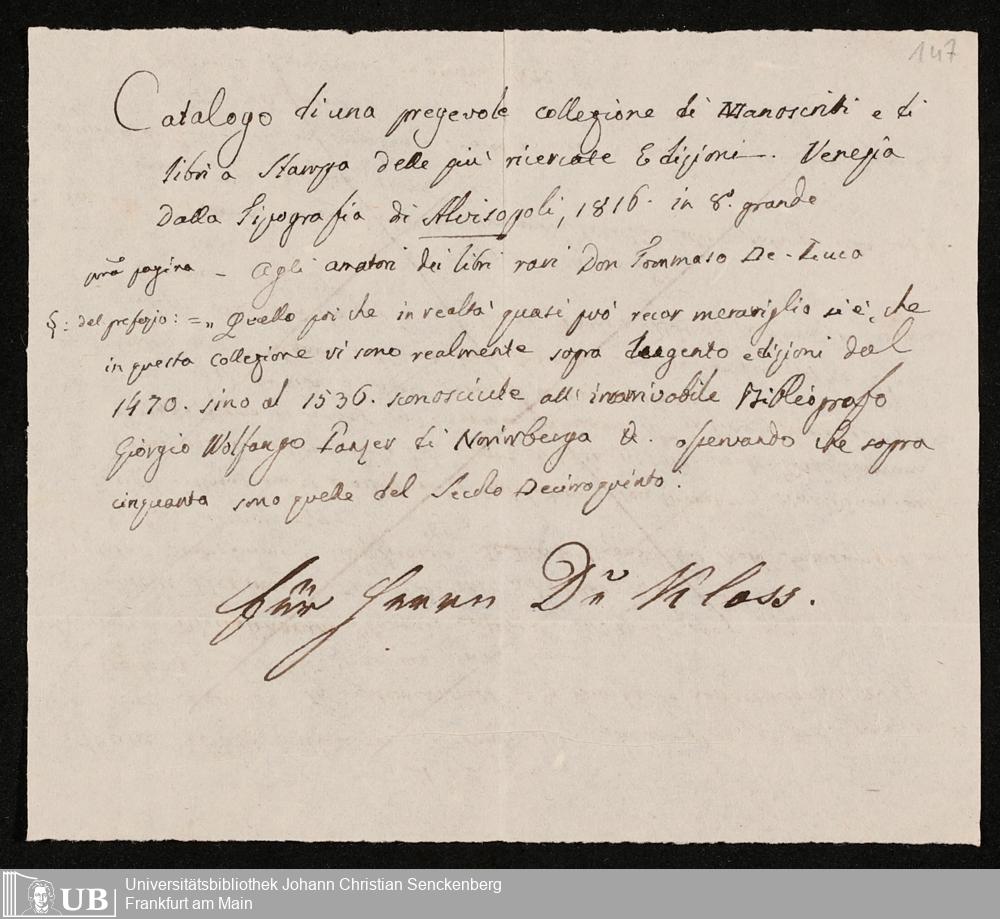 147
Catalogo di una pregevole collezione di Manoscritti e di
libri a Stampa delle più ricercate Edizioni. Venezia
Dalla Tipografia di Alvisopoli, 1816. in 8.º grande
prima pagina - Agli amatori dei libri rari Don Tommaso De-Luca
§: del prefazio: = „ Quello poi che in realtà quasi può recar meraviglia si è, che
in questa collezione vi sono realmente sopra dugento edizioni dal
1470. sino al 1536. sconosciute all' immirabile Bibliografo
Giorgio Wolfango Panzer di Norimberga &. osservando che sopra
cinquanta sono quelle del Secolo Decimoquinto.
für Herrn Dr Kloss.
UB
Universitätsbibliothek Johann Christian Senckenberg
Frankfurt am Main